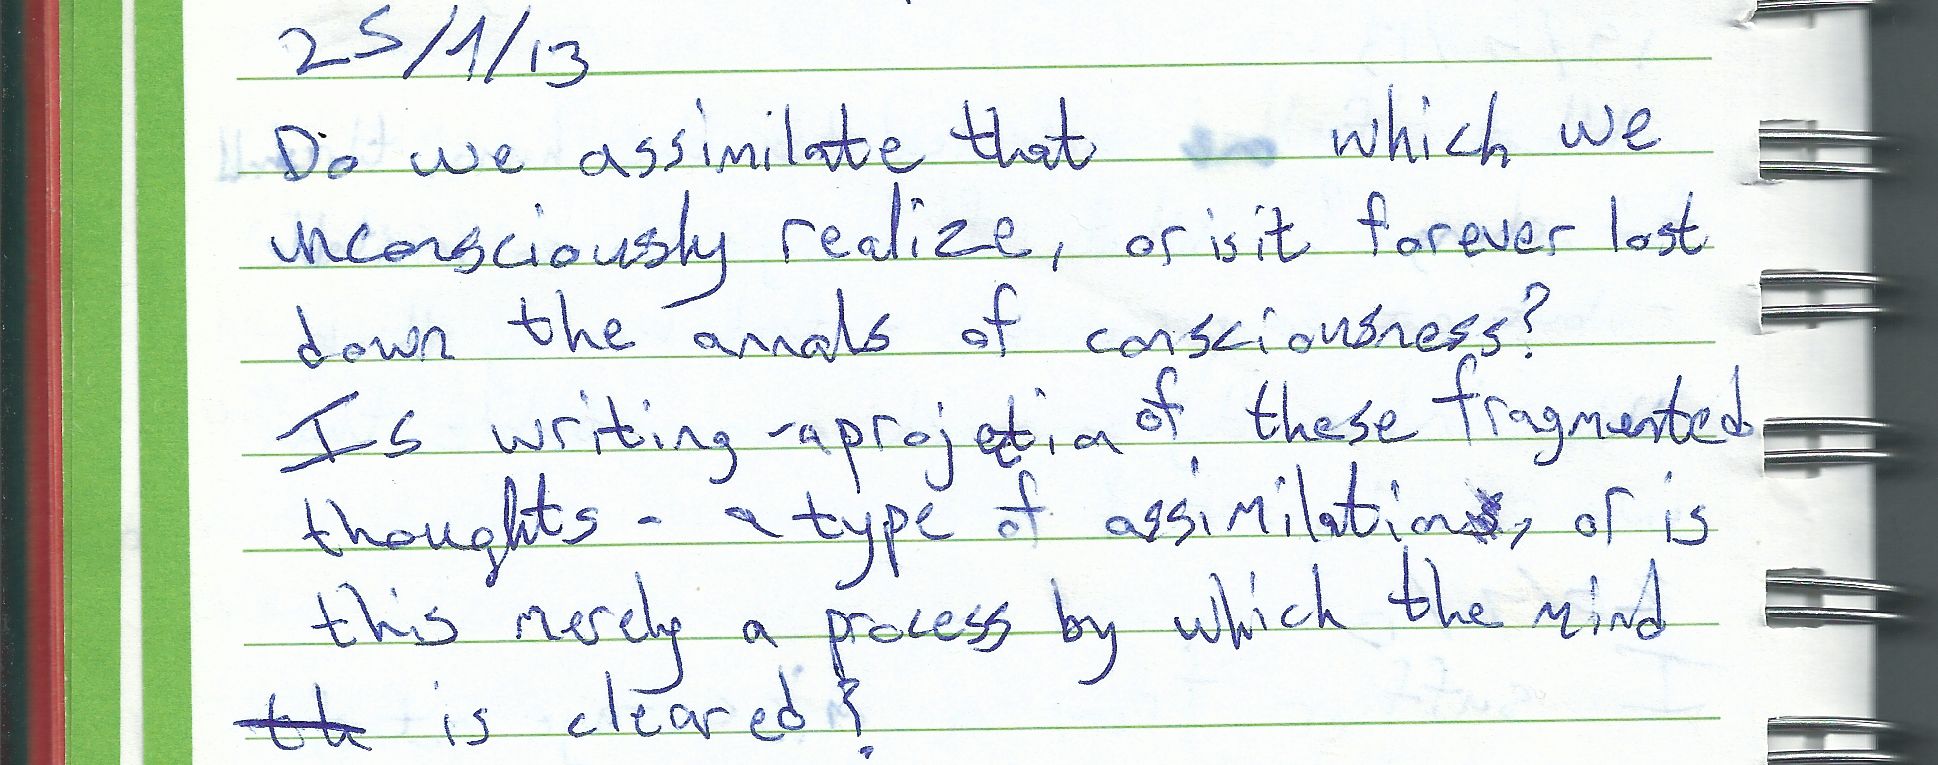 25/1/13
Do we assimilate that which we
unconsciously realize, or is it forever lost
down the annals of consciousness?
Is writing - a projection of these fragmented
thoughts - a type of assimilation, or is
this merely a process by which the mind
is cleared?